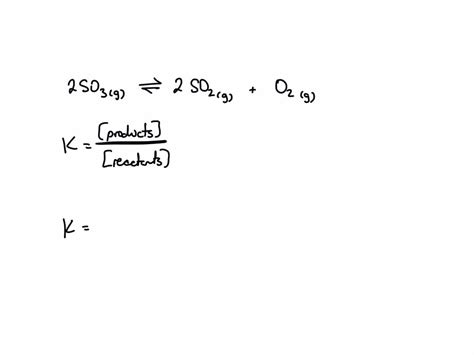 2SO₃(g) ⇌ 2 SO₂(g) + O₂(g)
K = [products] / [reactants]
K =